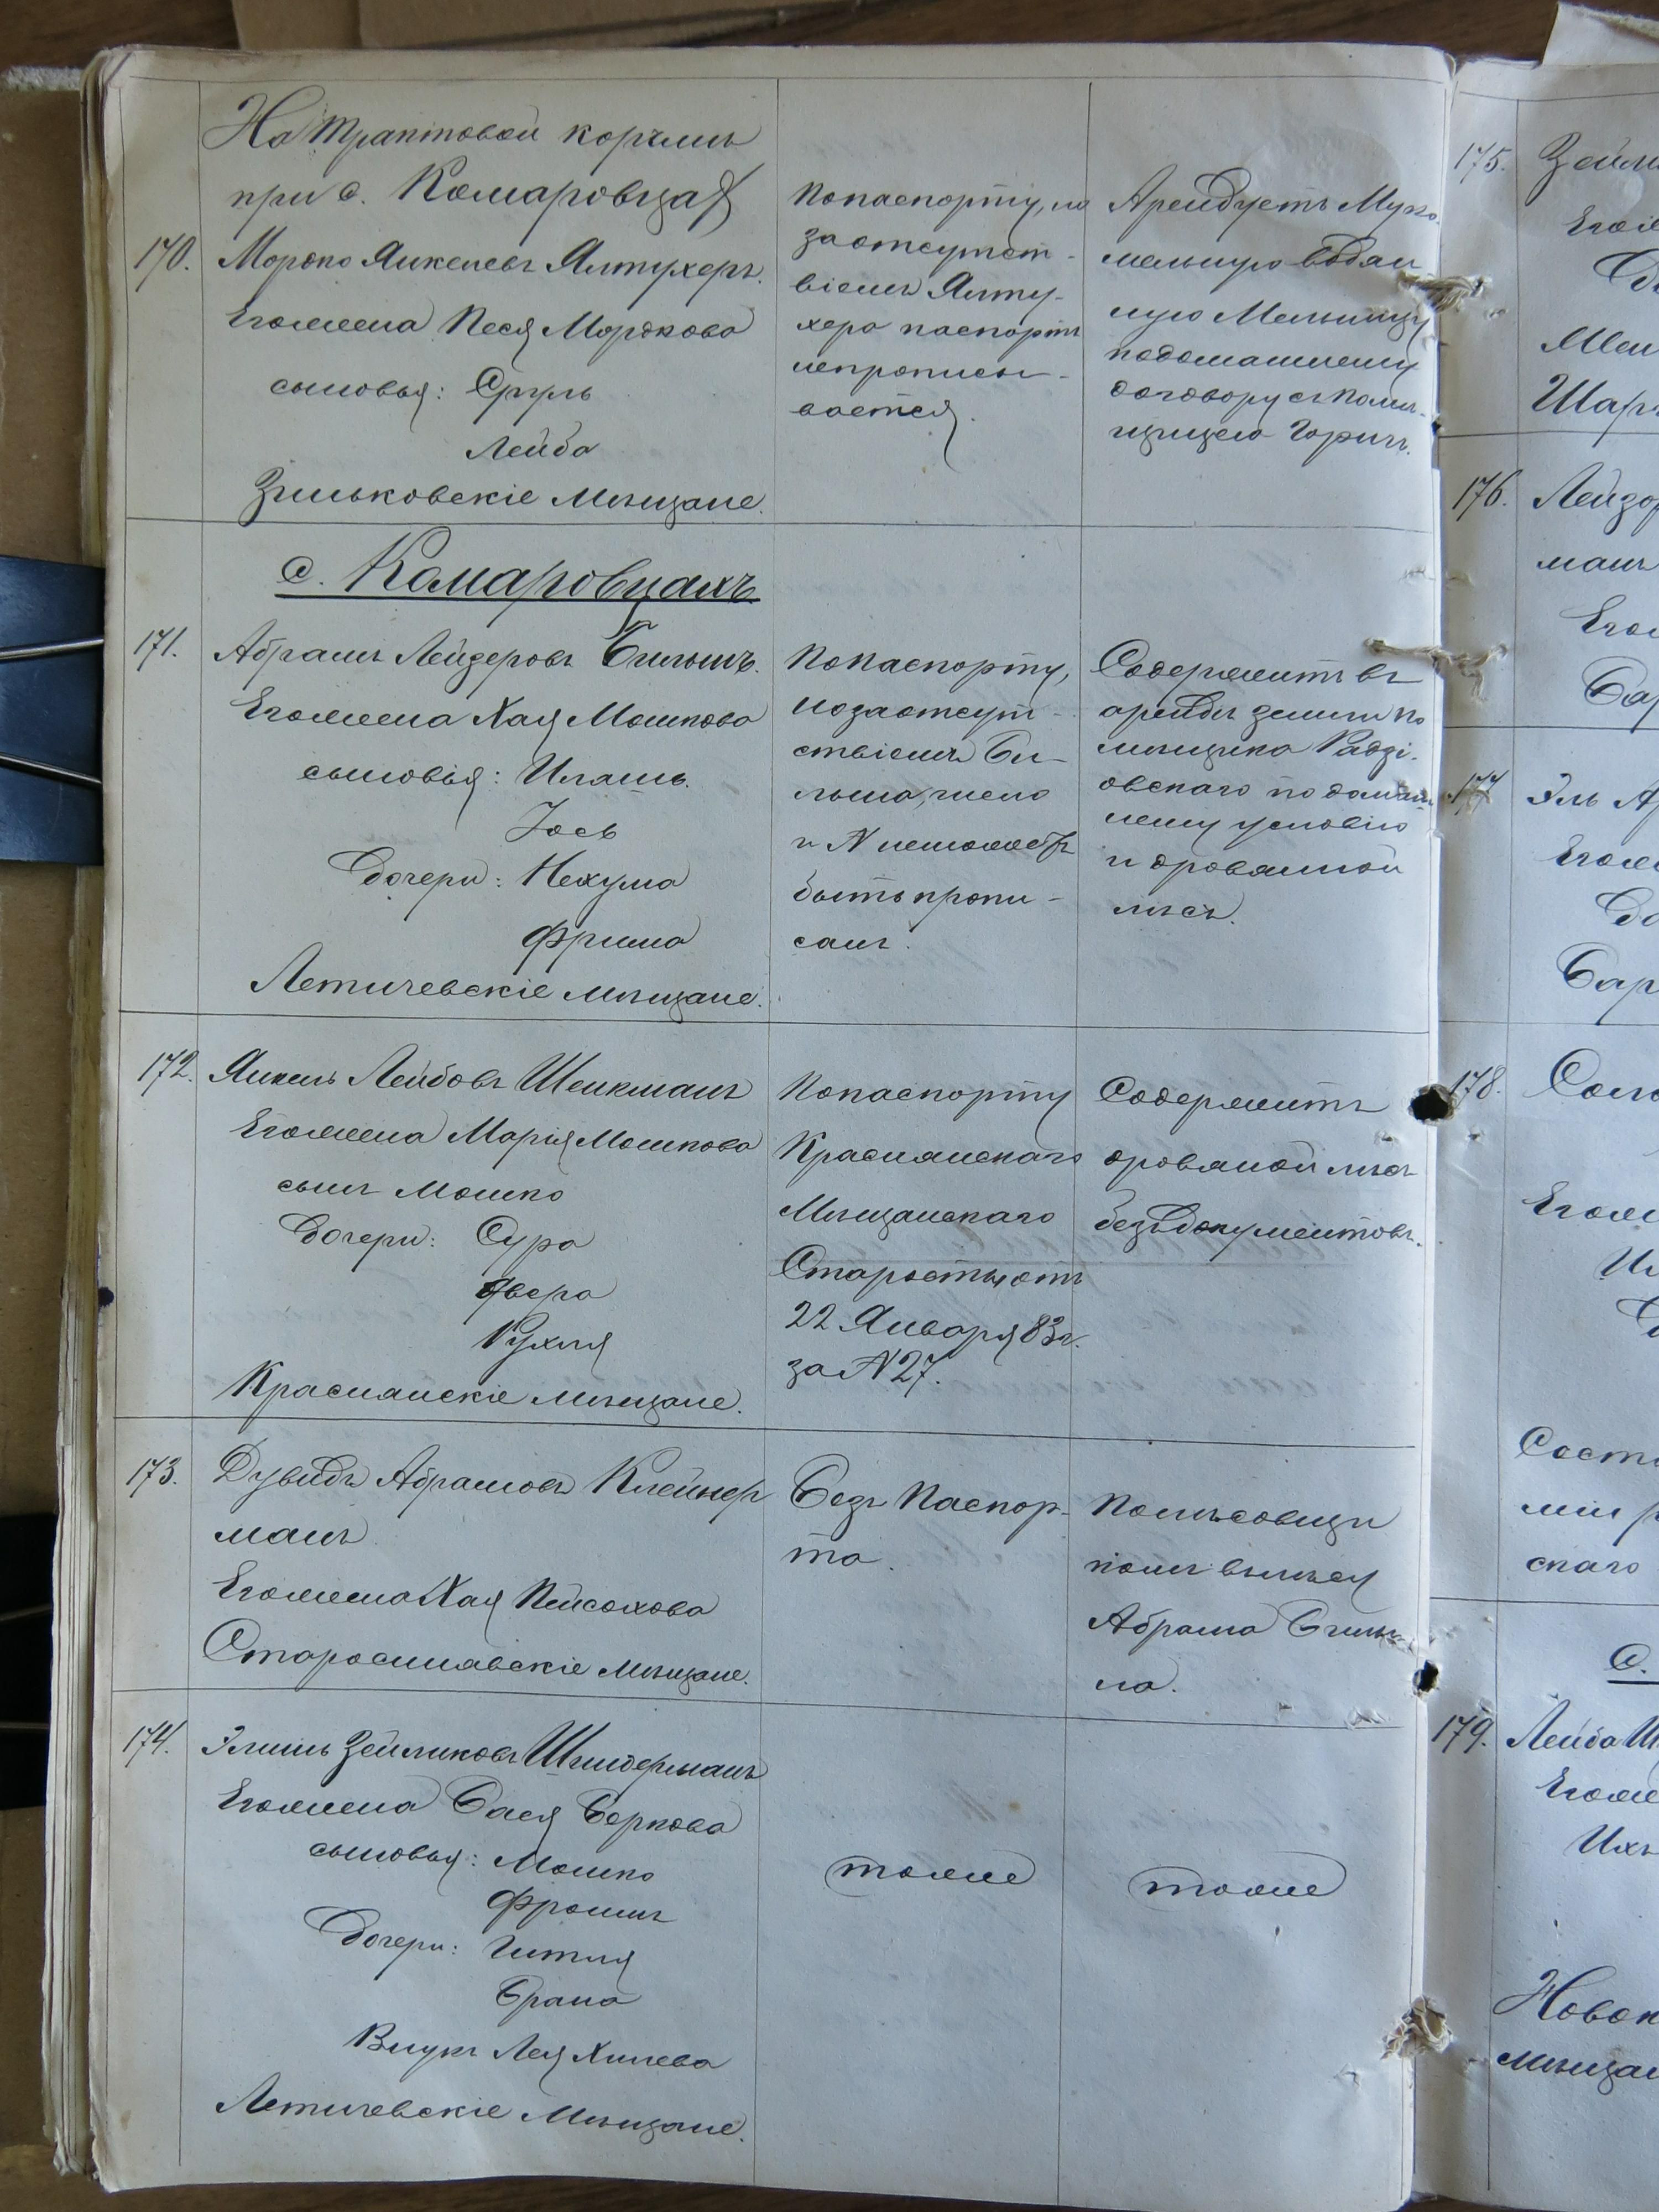 На трактовой корчмѣ
при с. Комаровцах
170. Мордко Янкелевъ Алтухеръ.
Его жена Песя Мордкова
сыновья: Сруль
Лейба
Зиньковскіе Мѣщане.
По паспорту, но
за отсутст-
віемъ Алту-
хера паспортъ
не прописы-
вается.
Арендуетъ Муко-
мельную водян
ную Мельницу
по домашнему
договору съ помѣ-
щицею Горичъ.
с. Комаровцахъ.
171. Абрамъ Лейзеровъ
Его жена Хая Мошкова
сыновья:
Іось
дочери: Нехума
Фрима
Летичевскіе мѣщане.
По паспорту,
но за отсут-
ствіемъ Би-
льма, число
и N не може тъ
быть пропи-
санъ.
Содержитъ въ
арендѣ земли по
мѣщика Радзі-
овскаго по домаш
нему условію
и дровянной
лѣсъ.
172. Янкель Лейбовъ Шенкманъ
Его жена Марія Мошкова
сынъ Мошко
дочери: Сура
Двера
Рухля
Краснянскіе мѣщане.
По паспорту
Краснянскаго
Мѣщанскаго
Старосты отъ
22 Января 83 г.
за N 27.
Содержитъ
дровяной лѣсъ
безъ документовъ.
173. Дувидъ Абрамовъ Клейнер
манъ
Его жена Хая Пейсахова
Старосинявскіе мѣщане.
Безъ Паспор-
та.
Помѣсовщи
комъ въ лѣсу
Абрама
ма.
174. Зейликовъ Шнидерманъ
Его жена Бася Беркова
сыновья: Мошко
Фроимъ
дочери: Гитля
Брана
Внукъ Лея Хилева
Летичевскіе Мѣщане.
тоже
тоже
175.
Его же
176. Лейзор
манъ
Его
Бар
177 Эль А
Его же
178.
Его же
скаго
с.
179. Лейба Ш
Его же
Ихъ
Новок
мѣщан